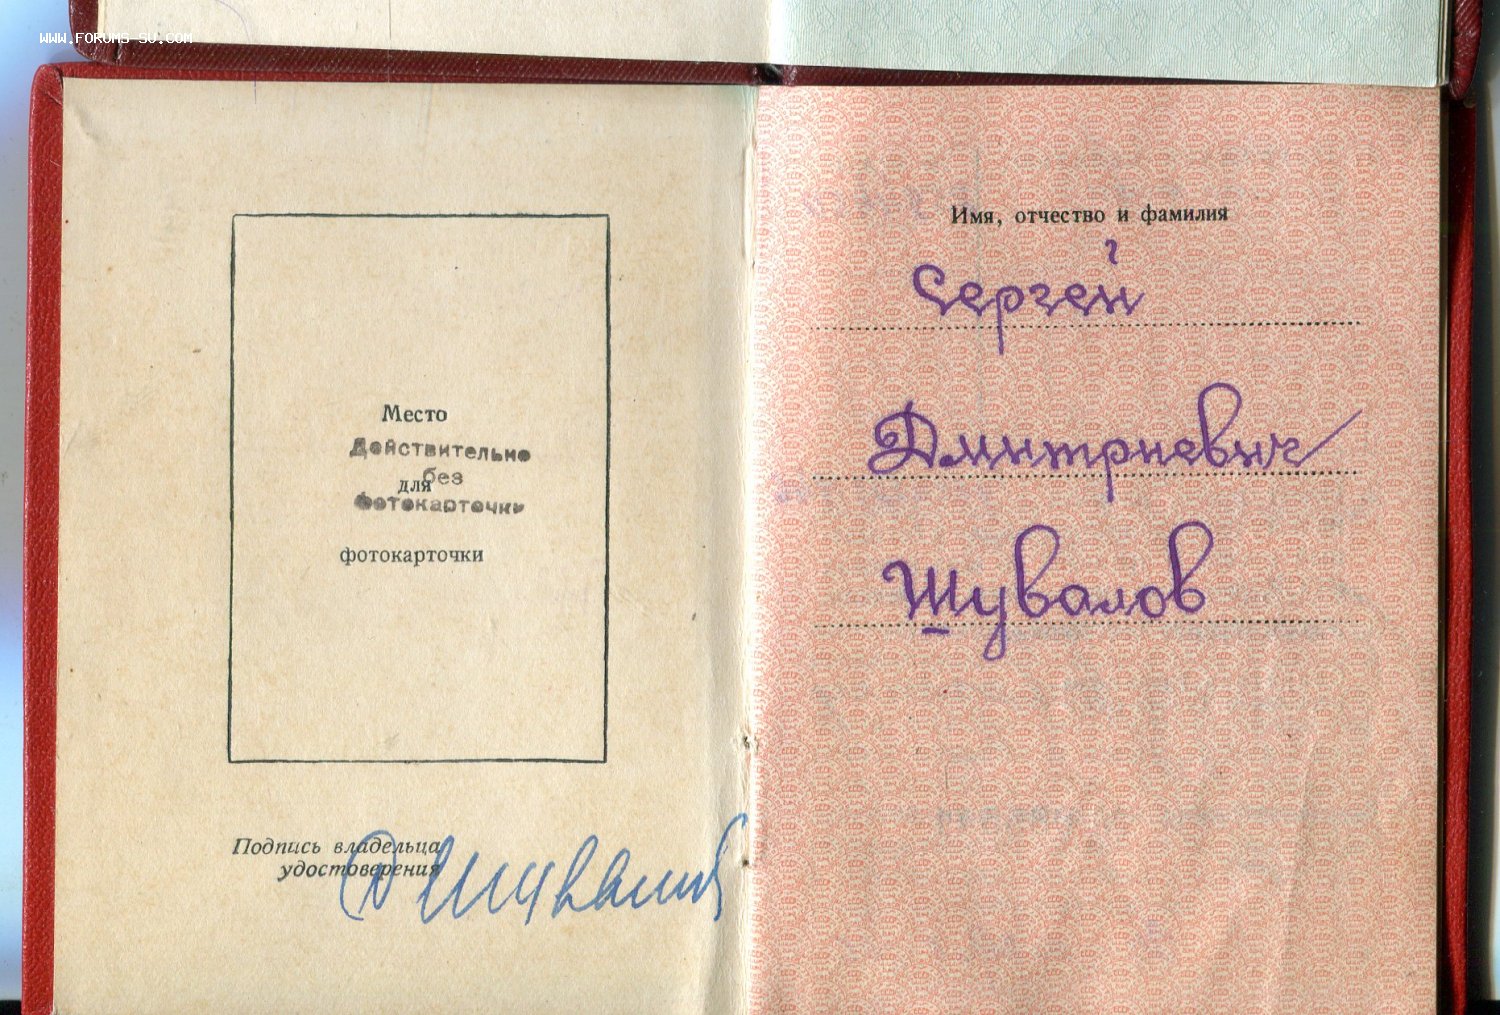 WWW.FORUMS-SU.COM
Место
Действительно
без
для
Фотокарточки
фотокарточки
Подпись владельца
удостоверения
Шувалов
Имя, отчество и фамилия
Сергей
Дмитриевич
Шувалов